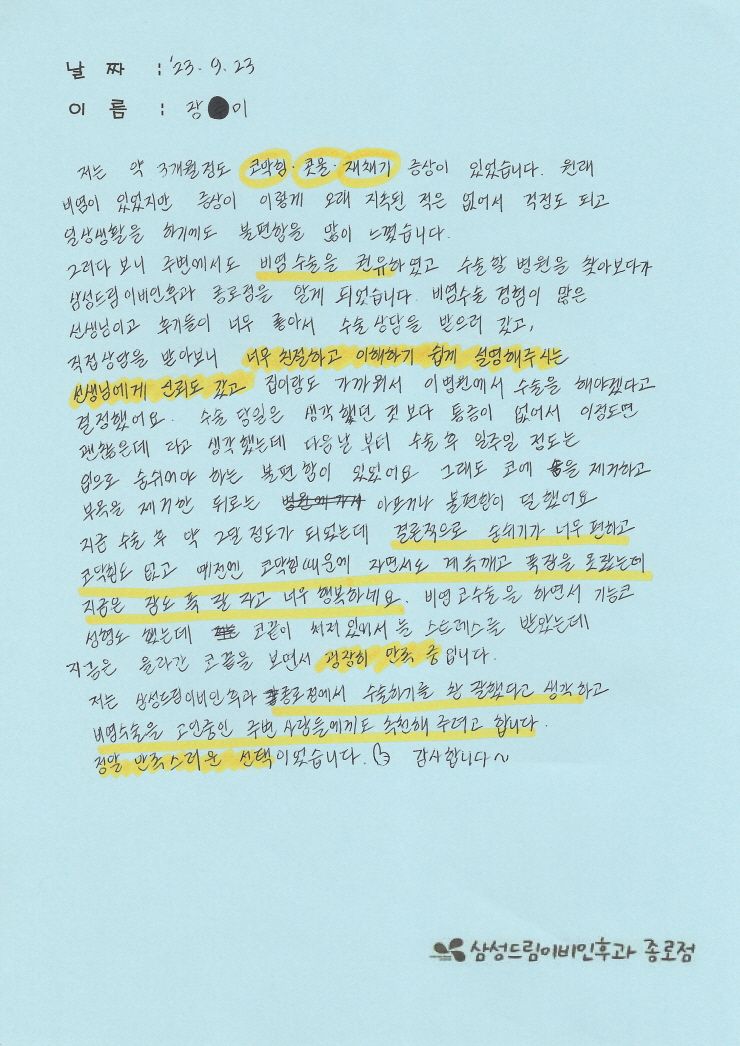 날 짜 : '23. 9. 23
이 름 : 장 이
저는 약 3개월정도 코막힘·콧물·재채기 증상이 있었습니다. 원래
비염이 있었지만 증상이 이렇게 오래 지속된 적은 없어서 걱정도 되고
일상생활을 하기에도 불편함을 많이 느꼈습니다.
그러다 보니 주변에서도 비염수술을 권유하였고 수술할 병원을 찾아보다가
삼성드림이비인후과 종로점을 알게 되었습니다. 비염수술 경험이 많은
선생님이고 후기들이 너무 좋아서 수술상담을 받으러 갔고,
직접상담을 받아보니 너무친절하고 이해하기 쉽게 설명해주시는
선생님에게 신뢰도 갔고 집이랑도 가까워서 이병원에서 수술을 해야겠다고
결정했어요. 수술 당일은 생각했던 것보다 통증이 없어서 이정도면
괜찮은데 라고 생각했는데 다음날 부터 수술후 일주일 정도는
입으로 숨쉬어야 하는 불편함이 있었어요 그래도 코에 솜을 제거하고
부목을 제거한 뒤로는 아프거나 불편함이 덜했어요
지금 수술후 약 2달정도가 되었는데 결론적으로 숨쉬기가 너무 편하고
코막힘도 없고 예전엔 코막힘때문에 자면서도 계속깨고 푹잠을 못잤는데
지금은 잠도 푹 잘 자고 너무 행복하네요. 비염코수술을 하면서 기능코
성형도 했는데 코끝이 쳐져있어서 늘 스트레스를 받았는데
지금은 올라간 코끝을 보면서 굉장히 만족 중입니다.
저는 삼성드림이비인후과 종로점에서 수술하기를 참 잘했다고 생각하고
비염수술을 고민중인 주변 사람들에게도 추천해 주려고 합니다.
정말 만족스러운 선택이었습니다. 감사합니다~
삼성드림이비인후과 종로점